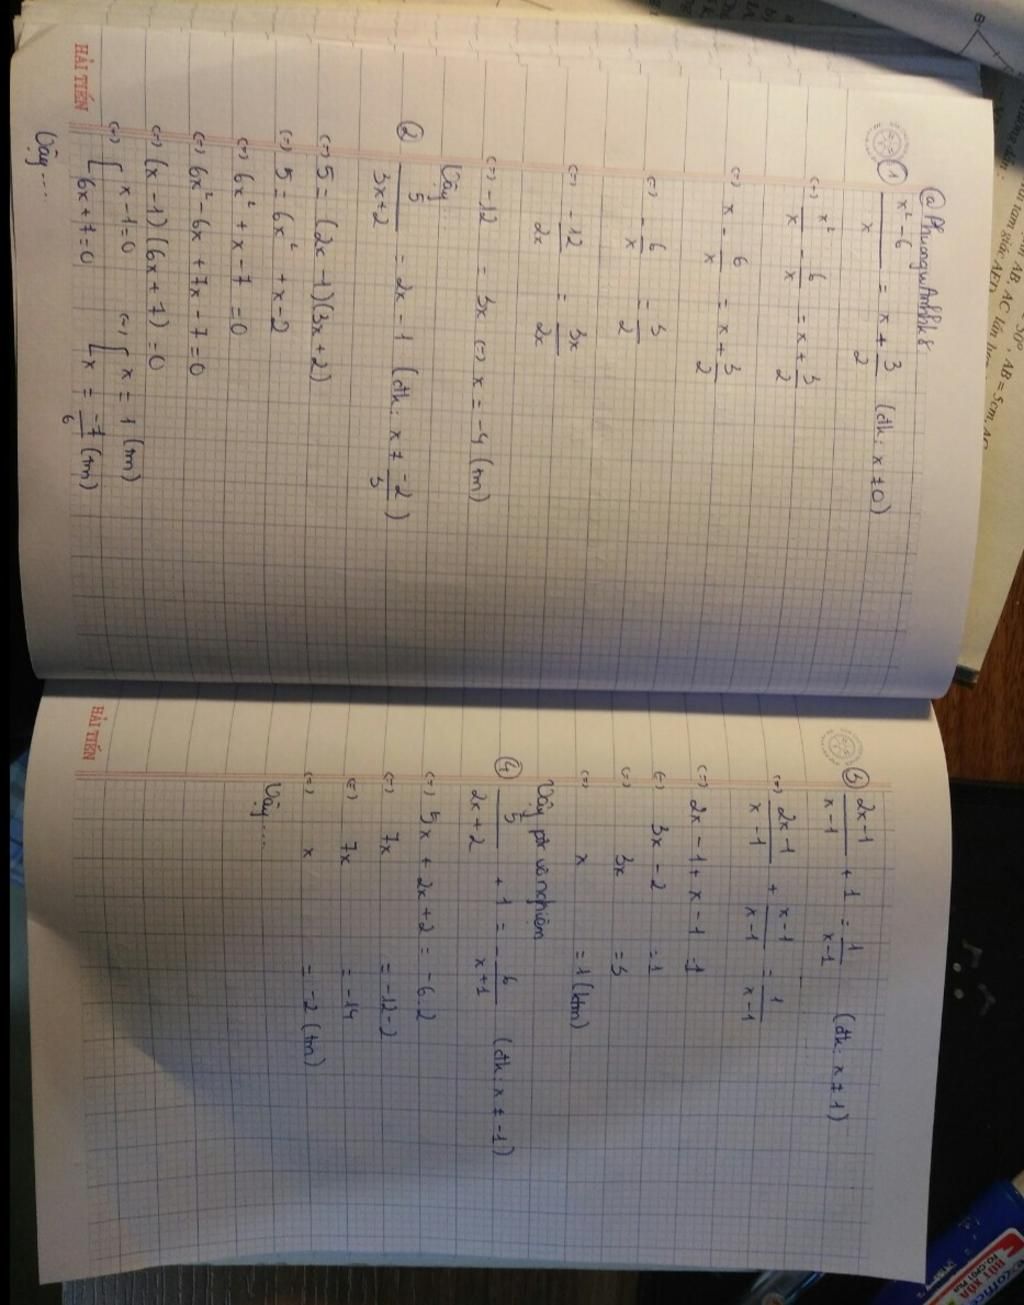 @PhuongwAnhhk8
① x² - 6 / x = x + 3/2 (đk: x ≠ 0)
(=) x²/x - 6/x = x + 3/2
(=) x - 6/x = x + 3/2
(=) - 6/x = 3/2
(=) -12/2x = 3x/2x
(=) -12 = 3x (=) x = -4 (tm)
Vậy...
② 5/3x+2 = 2x - 1 (đk: x ≠ -2/3)
(=) 5 = (2x - 1)(3x + 2)
(=) 5 = 6x² + x - 2
(=) 6x² + x - 7 = 0
(=) 6x² - 6x + 7x - 7 = 0
(=) (x - 1)(6x + 7) = 0
(=) [ x - 1 = 0 (=) [ x = 1 (tm)
[ 6x + 7 = 0 [ x = -7/6 (tm)
Vậy...
HẢI TIẾN
③ 2x-1/x-1 + 1 = 1/x-1 (đk: x ≠ 1)
(=) 2x-1/x-1 + x-1/x-1 = 1/x-1
(=) 2x - 1 + x - 1 = 1
(=) 3x - 2 = 1
(=) 3x = 3
(=) x = 1 (ktm)
Vậy pt vô nghiệm
④ 5/2x+2 + 1 = - 6/x+1 (đk: x ≠ -1)
(=) 5x + 2x + 2 = -6.2
(=) 7x = -12-2
(=) 7x = -14
(=) x = -2 (tm)
Vậy...
HẢI TIẾN